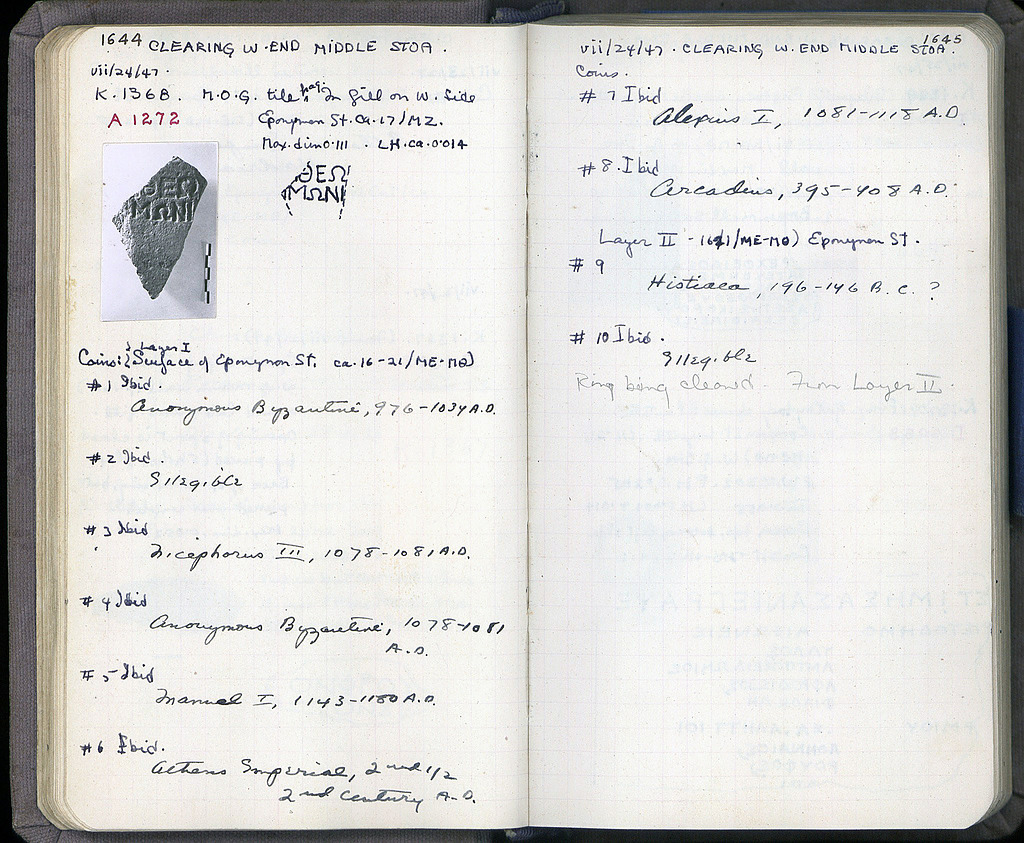 1644 CLEARING W. END MIDDLE STOA.
vii/24/47.
K.1368. M.O.G. tile frag. In fill on W. Side
A 1272 Eponymon St. Ca. 17/MZ.
Max. dim 0.111. LH. ca. 0.014
ΘΕΩ
ΜΩΝΙ
ΘΕΩ
ΜΩΝΙ
Layer I
Coins: Surface of Eponymon St. ca. 16-21/ME-MΘ)
#1 Ibid.
Anonymous Byzantine, 976-1034 A.D.
#2 Ibid.
Illegible
#3 Ibid
Nicephorus III, 1078-1081 A.D.
#4 Ibid
Anonymous Byzantine, 1078-1081
A.D.
#5 Ibid
Manuel I, 1143-1180 A.D.
#6 Ibid.
Athens Imperial, 2nd 1/2
2nd Century A.D.
1645
vii/24/47. CLEARING W. END MIDDLE STOA.
Coins.
#7 Ibid
Alexius I, 1081-1118 A.D.
#8. Ibid
Arcadius, 395-408 A.D.
Layer II - /ME-MΘ) Eponymon St.
#9
Histiaea, 196-146 B.C. ?
#10 Ibid.
Illegible
Ring being cleaned. From Layer II.